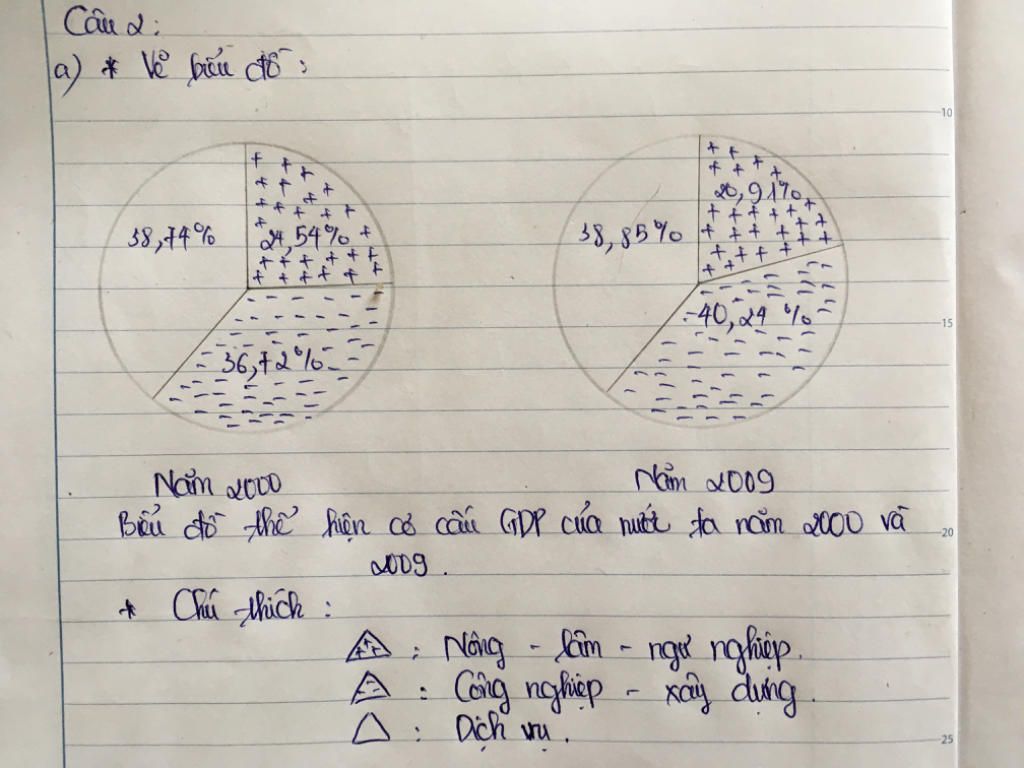 Câu 2:
a) * Vẽ biểu đồ:
10
38,74%
24,54%
36,72%
38,85%
20,91%
40,24 %
15
Năm 2000
Năm 2009
Biểu đồ thể hiện cơ cấu GDP của nước ta năm 2000 và
20
2009.
* Chú thích:
: Nông - lâm - ngư nghiệp.
: Công nghiệp - xây dựng.
: Dịch vụ.
25